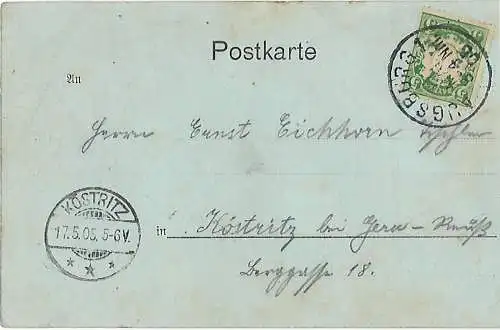 Postkarte
An
Herrn Ernst Eichhorn
KÖSTRITZ
17.5.05. 5-6V.
in Köstritz bei Gera-Reuß
Berggasse 18.